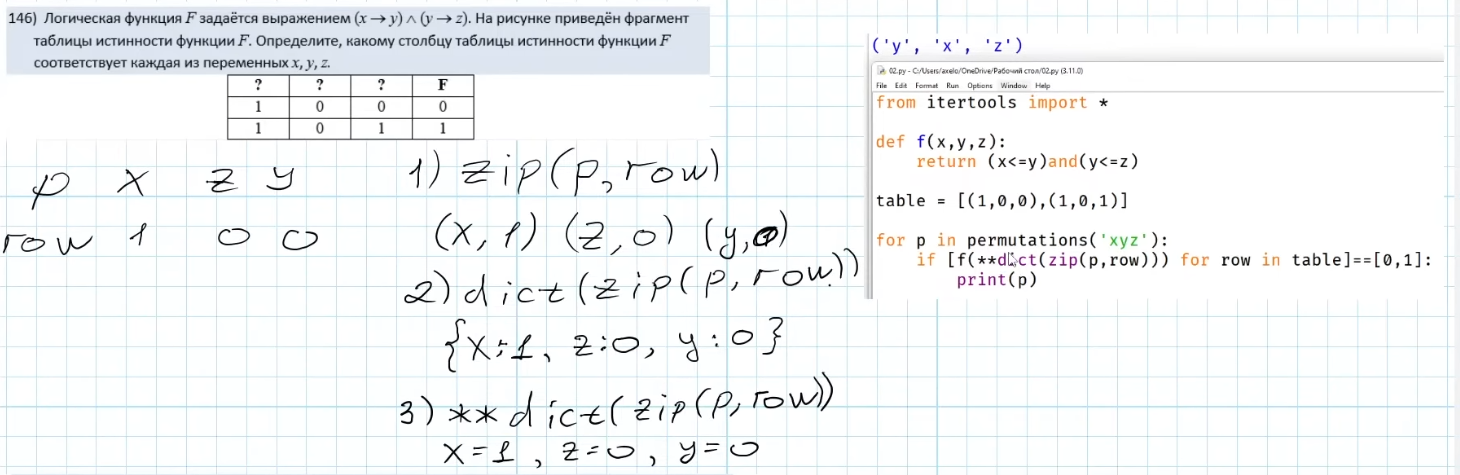 146) Логическая функция F задаётся выражением (x → y) ∧ (y → z). На рисунке приведён фрагмент
таблицы истинности функции F. Определите, какому столбцу таблицы истинности функции F
соответствует каждая из переменных x, y, z.
? ? ? F
1 0 0 0
1 0 1 1
p x z y
row 1 0 0
1) zip(p, row)
(x, 1) (z, 0) (y, 0)
2) dict(zip(p, row))
{x:1, z:0, y:0}
3) **dict(zip(p, row))
x=1, z=0, y=0
('y', 'x', 'z')
02.py - C:/Users/axelo/OneDrive/Рабочий стол/02.py (3.11.0)
File Edit Format Run Options Window Help
from itertools import *
def f(x,y,z):
    return (x<=y)and(y<=z)
table = [(1,0,0),(1,0,1)]
for p in permutations('xyz'):
    if [f(**dict(zip(p,row))) for row in table]==[0,1]:
        print(p)